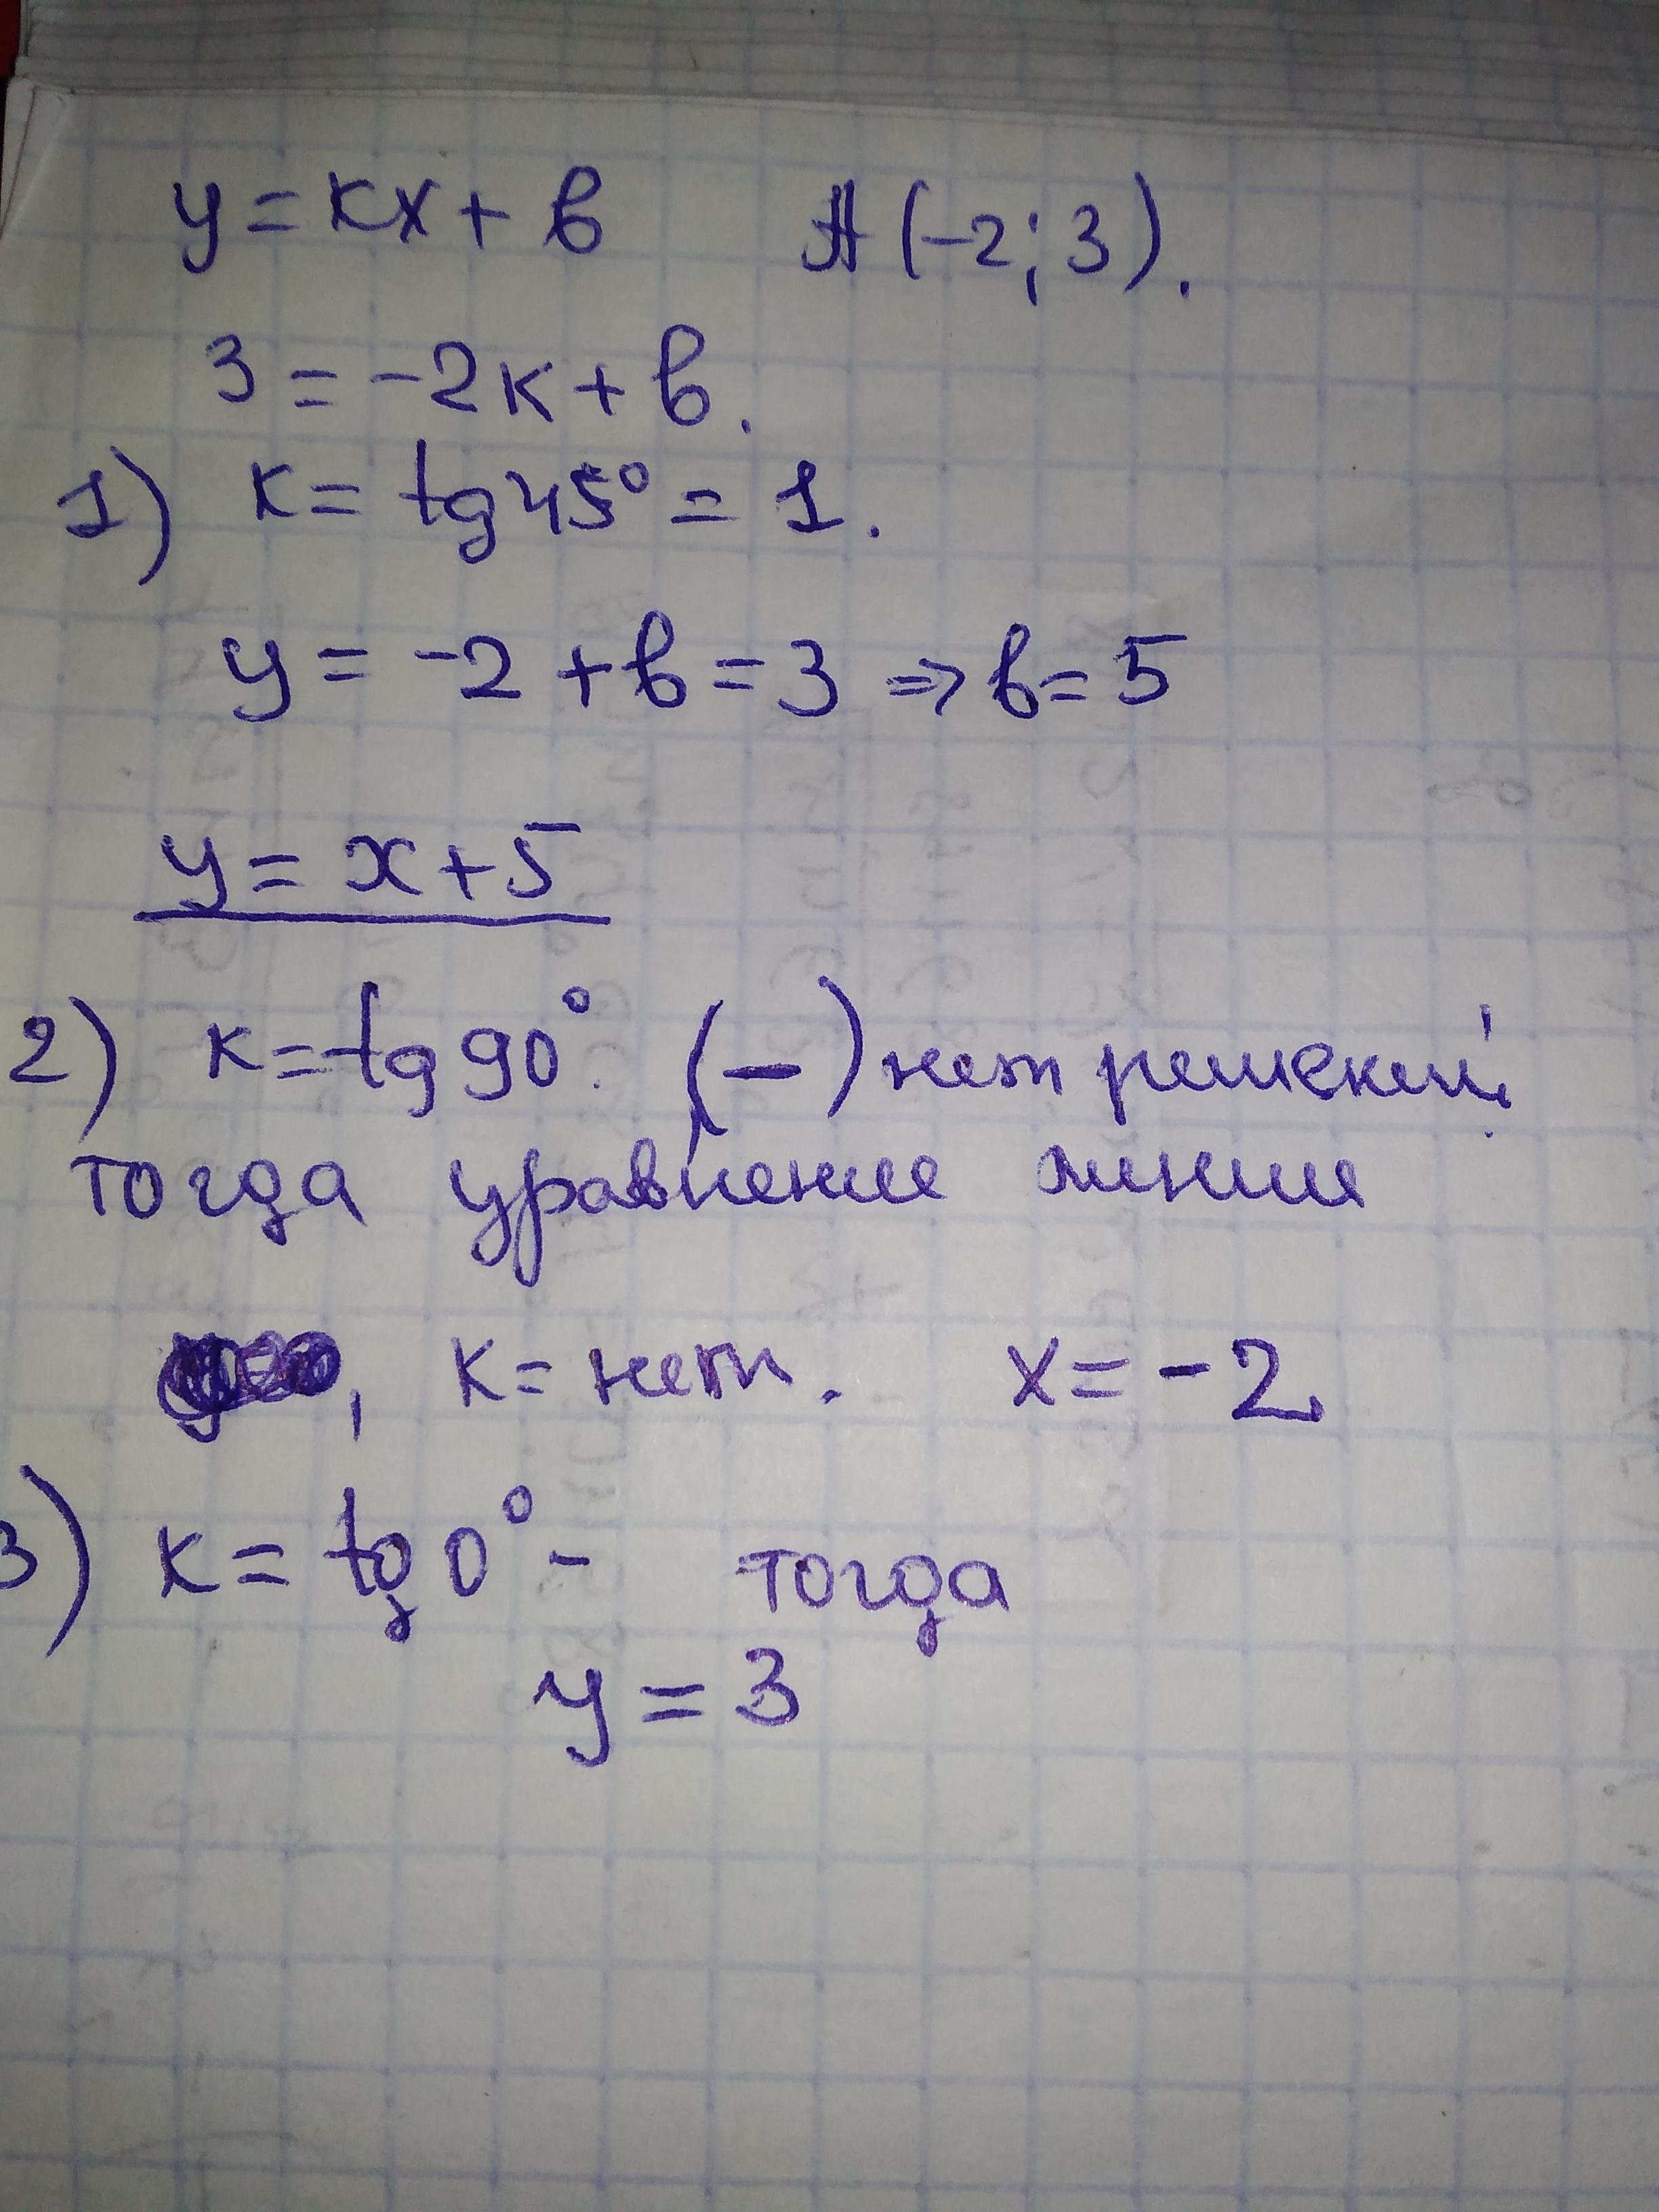 y = kx + b A (-2; 3).
3 = -2k + b.
1) k = tg 45° = 1.
y = -2 + b = 3 => b = 5
y = x + 5
2) k = tg 90°. (-) нет решений,
тогда уравнение линии
, k = нет. x = -2,
3) k = tg 0° - тогда
y = 3